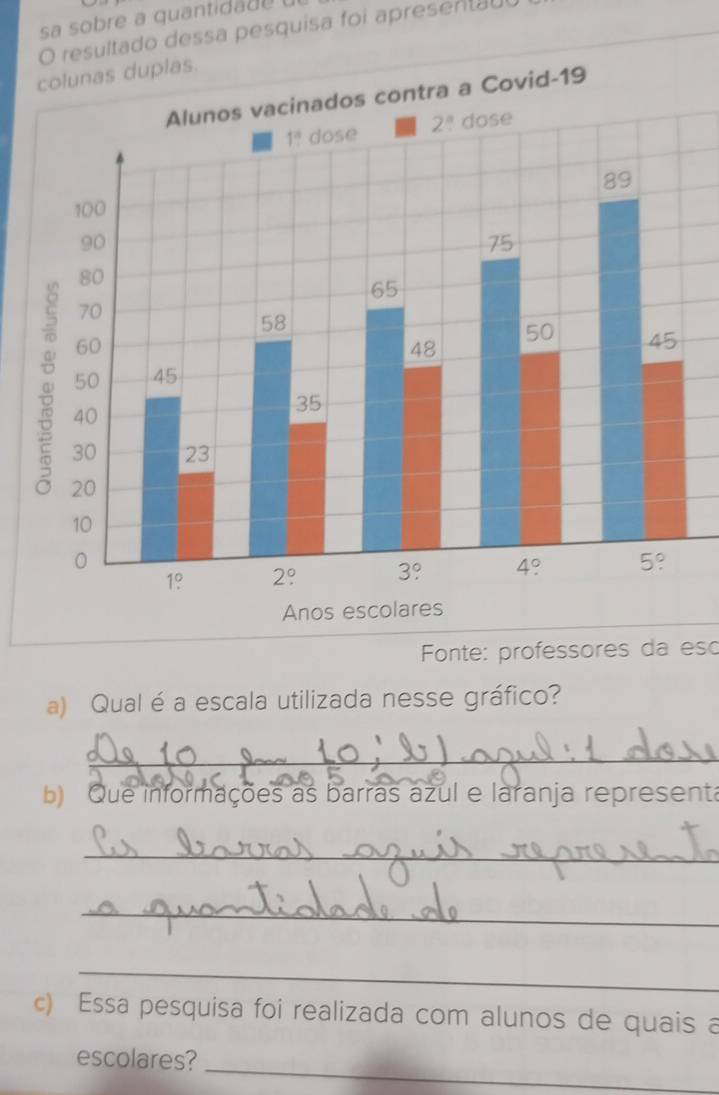 sa sobre a quantidade
O resultado dessa pesquisa foi apresentado
colunas duplas.
Alunos vacinados contra a Covid-19
1ª dose 2ª dose
Quantidade de alunos
100
90
80
70
60
50
40
30
20
10
0
45 23
58 35
65 48
75 50
89 45
1º 2º 3º 4º 5º
Anos escolares
Fonte: professores da esc
a) Qual é a escala utilizada nesse gráfico?
De 10 em 10; b) azul: 1 dose
2 dose, c 1 ao 5 ano
b) Que informações as barras azul e laranja representa
barras azuis represent
a quantidade de
c) Essa pesquisa foi realizada com alunos de quais a
escolares?